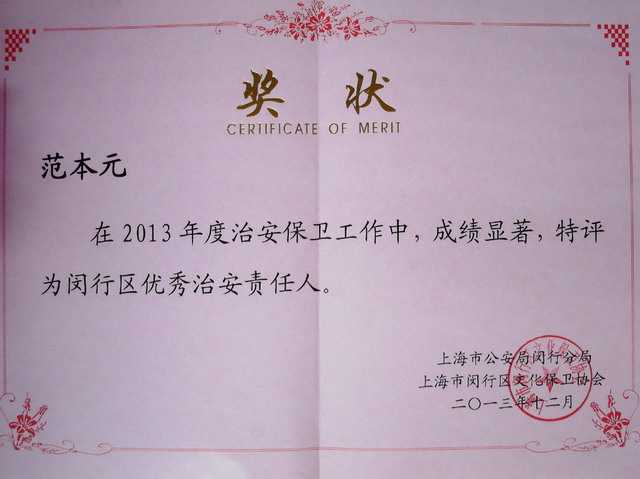 奖 状
CERTIFICATE OF MERIT
范本元
在2013年度治安保卫工作中，成绩显著，特评
为闵行区优秀治安责任人。
上海市公安局闵行分局
上海市闵行区文化保卫协会
二〇一三年十二月